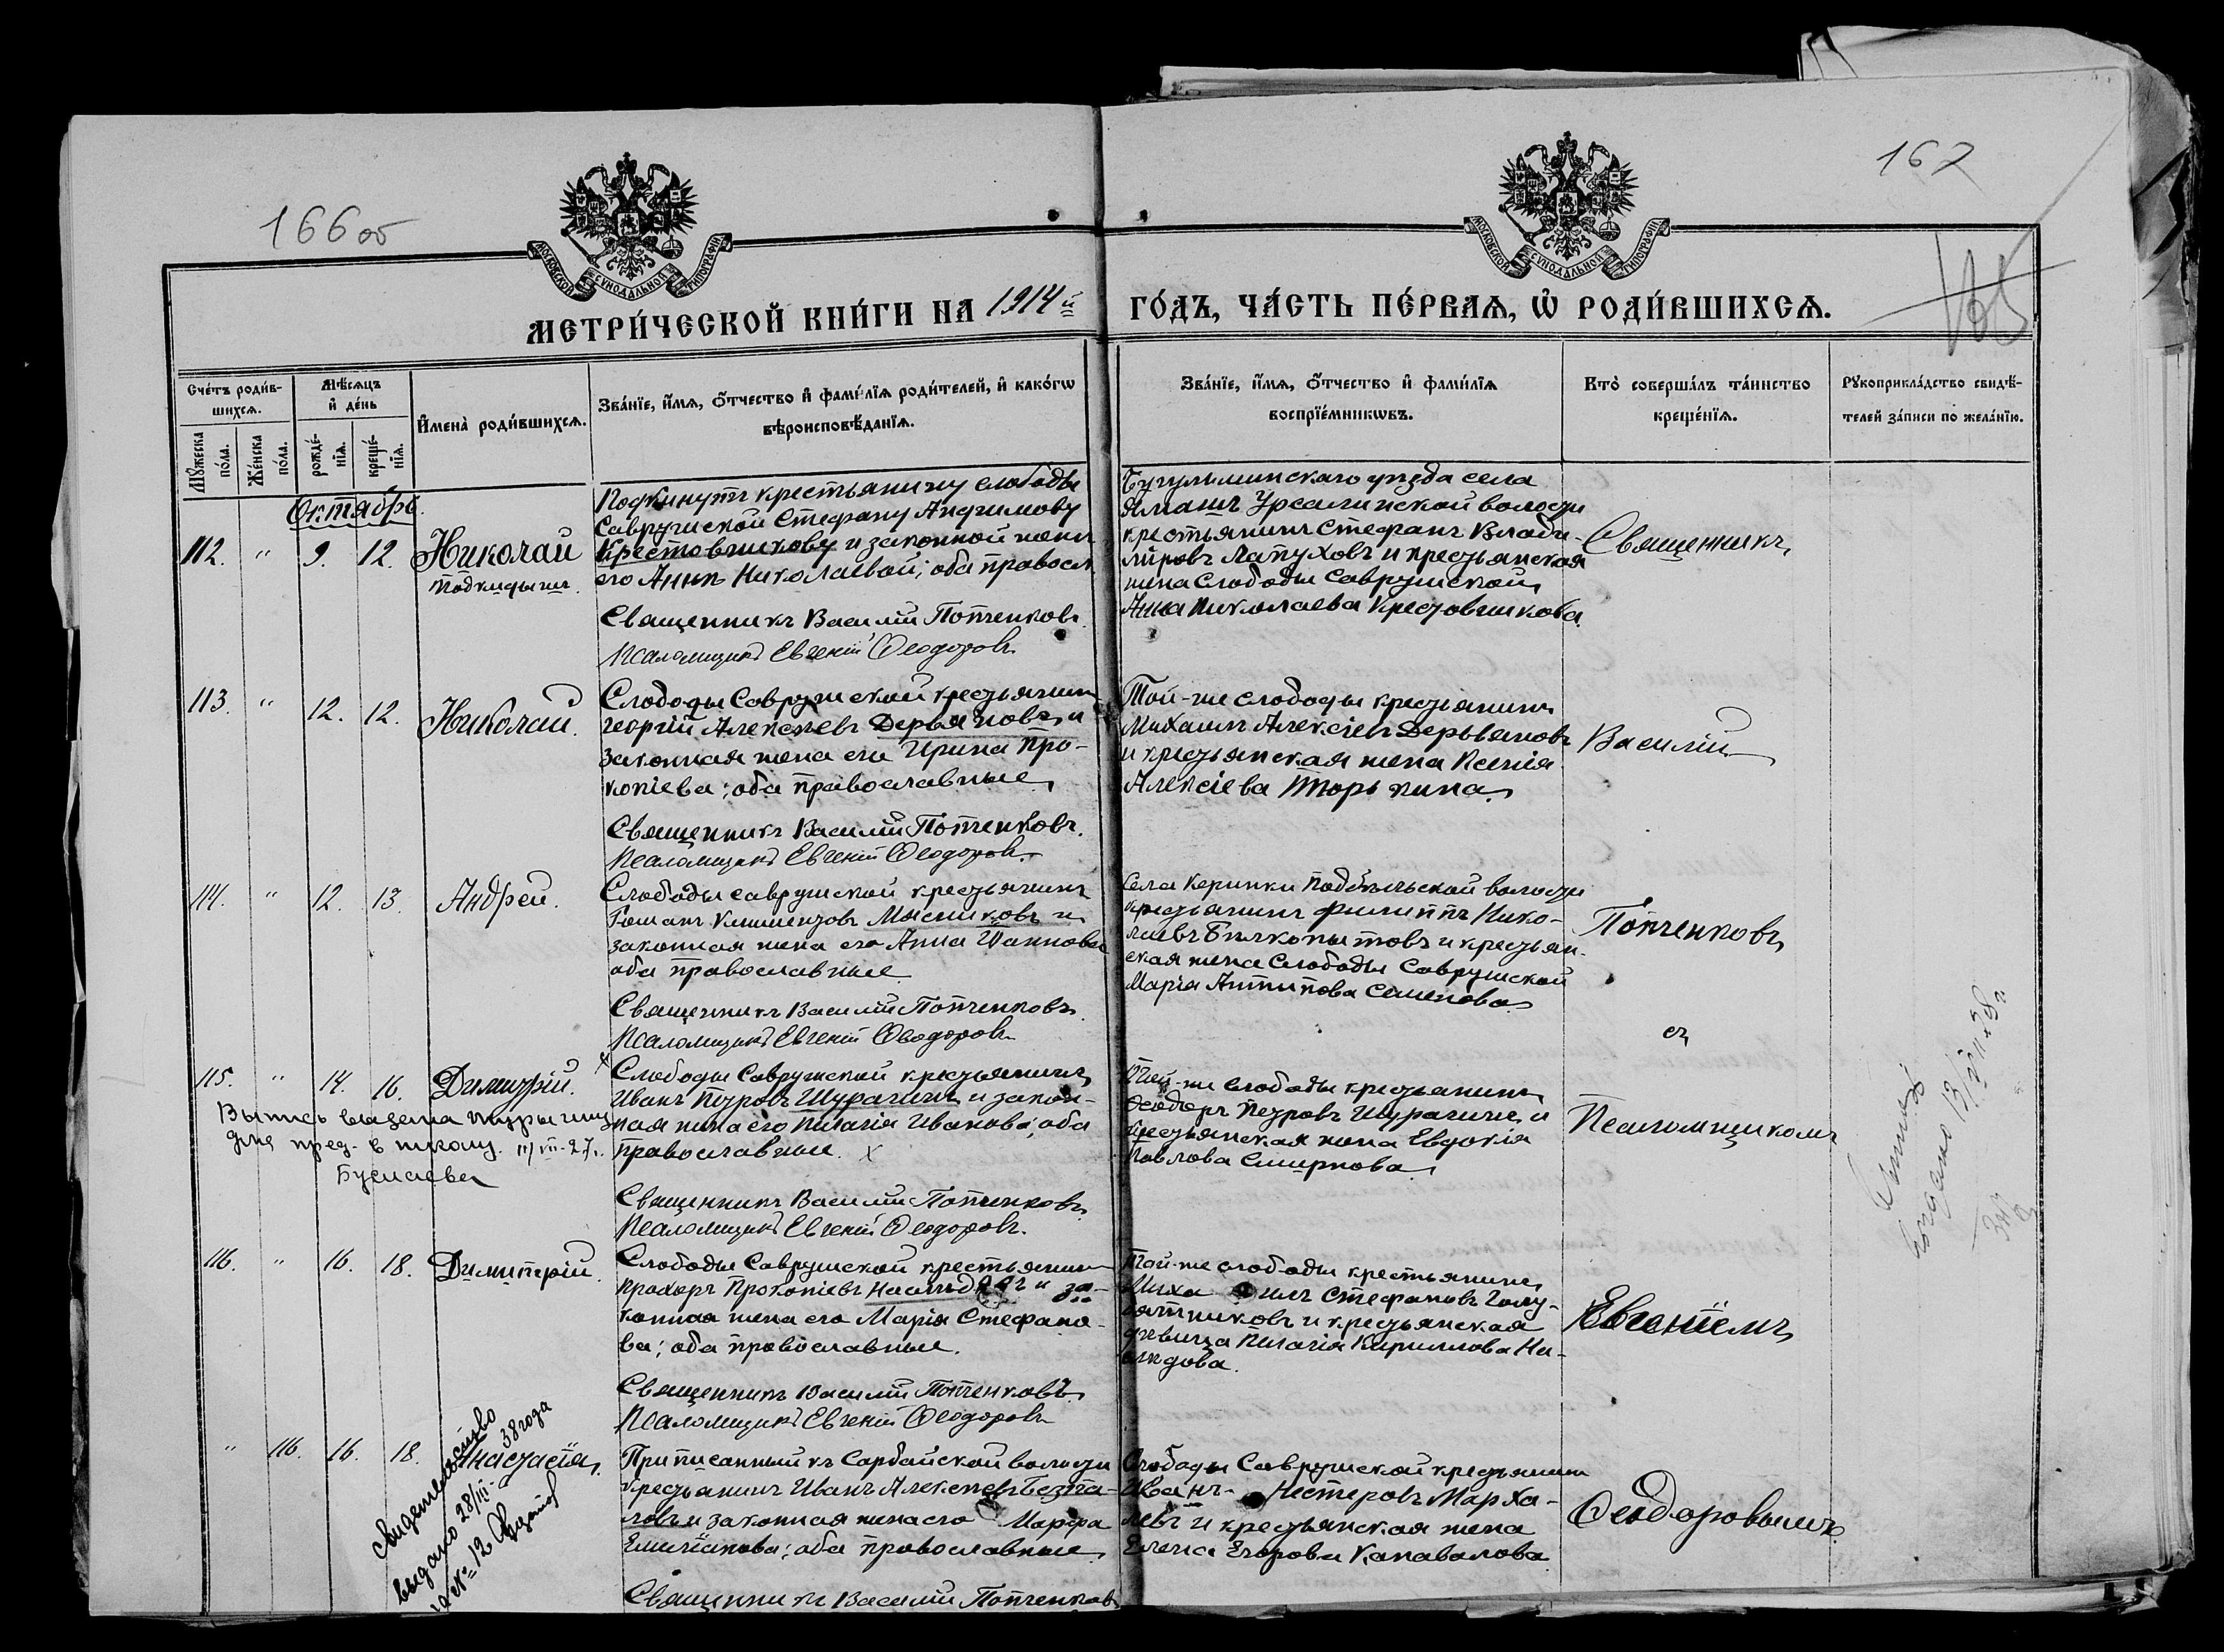 166 об
167
МОСКОВСКОЙ СѴНОДАЛЬНОЙ ТИПОГРАФІИ
МОСКОВСКОЙ СѴНОДАЛЬНОЙ ТИПОГРАФІИ
МЕТРИ́ЧЕСКОЙ КНИ́ГИ НА 1914й
ГО́ДЪ, ЧА́СТЬ ПЕ́РВАЯ, Ѽ РОДИ́ВШИХСЯ.
Сче́тъ роди́в-
шихся.
Мꙋжеска по́ла.
Же́нска по́ла.
Мѣ́сяцъ
и҆ де́нь
рожде́-
нїя.
креще́-
нїя.
И҆мена̀ роди́вшихся.
Зва́нїе, и҆́мя, ѻ҆́тчество и҆ фами́лїя роди́телей, и҆ како́гѡ
вѣроисповѣ́данїя.
Зва́нїе, и҆́мя, ѻ҆́тчество и҆ фами́лїя
воспрїе́мникѡвъ.
Кто̀ соверша́лъ та́инство
креще́нїя.
Рꙋкоприкла́дство свидѣ́-
телей за́писи по жела́нїю.
Октябрь.
112. " 9. 12. Николай
подкидышъ.
Подкинутъ крестьянину слободы
Саврушской Стефану Анфимову
Крестовникову и законной женѣ
его Аннѣ Николаевой; оба правосл
Священникъ Василій Попченковъ.
Псаломщикъ Евгеній Ѳеодоровъ.
Бугульминскаго уѣзда села
Урсалинской волости
крестьянинъ Стефанъ Влади-
міровъ Лапуховъ и крестьянская
жена Слободы Саврушской
Анна Николаева Крестовникова.
Священникъ
113. " 12. 12. Николай.
Слободы Саврушской крестьянинъ
Георгій Алексѣевъ Деревяновъ и
законная жена его Ирина Про-
копіева; оба православные.
Священникъ Василій Попченковъ.
Псаломщикъ Евгеній Ѳеодоровъ.
Той-же слободы крестьянинъ
Михаилъ Алексіевъ Деревяновъ
и крестьянская жена Ксенія
Алексіева
Василій
114. " 12. 13. Андрей.
Слободы Саврушской крестьянинъ
Романъ Климентовъ Мясниковъ и
законная жена его Анна Іоаннова
оба православные
Священникъ Василій Попченковъ.
Псаломщикъ Евгеній Ѳеодоровъ.
Села Керинки Подбѣльской волости
крестьянинъ Филиппъ Нико-
лаевъ Бѣлкопытовъ и крестьян-
ская жена Слободы Саврушской
Марія Антипова Семенова
Попченковъ
съ
115. " 14. 16. Димитрій.
Слободы Саврушской крестьянинъ
Иванъ Петровъ Шурагинъ и закон-
ная жена его Пелагія Иванова; оба
православные. х
Священникъ Василій Попченковъ.
Псаломщикъ Евгеній Ѳеодоровъ.
Выпись выдана
для пред. в школу. 11/VII-27г.
Той-же слободы крестьянинъ
Ѳеодоръ Петровъ Шурагинъ и
крестьянская жена Евдокія
Павлова Смирнова.
Псаломщикомъ
116. " 16. 18. Димитрій.
Слободы Саврушской крестьянинъ
Прохоръ Прокопіевъ и за-
конная жена его Марія Стефано-
ва; оба православные.
Священникъ Василій Попченковъ.
Псаломщикъ Евгеній Ѳеодоровъ.
Той-же слободы крестьянинъ
Михаилъ Стефановъ Голу-
бятниковъ и крестьянская
дѣвица Пелагія Кириллова На-
слѣдова.
Евгеніемъ
" 116. 16. 18. Анастасія.
Приписанный къ Сарбайской волости
крестьянинъ Иванъ Алексѣевъ Безпа-
ловъ и законная жена его Марфа
Емиліанова; оба православные.
Священникъ Василій Попченковъ
Слободы Саврушской крестьянинъ
Иванъ Нестеровъ Марха-
левъ и крестьянская жена
Елена Егорова Канавалова.
Ѳеодоровымъ.
свидетельство
выдано 28/III-38 года
за № 12
выдано